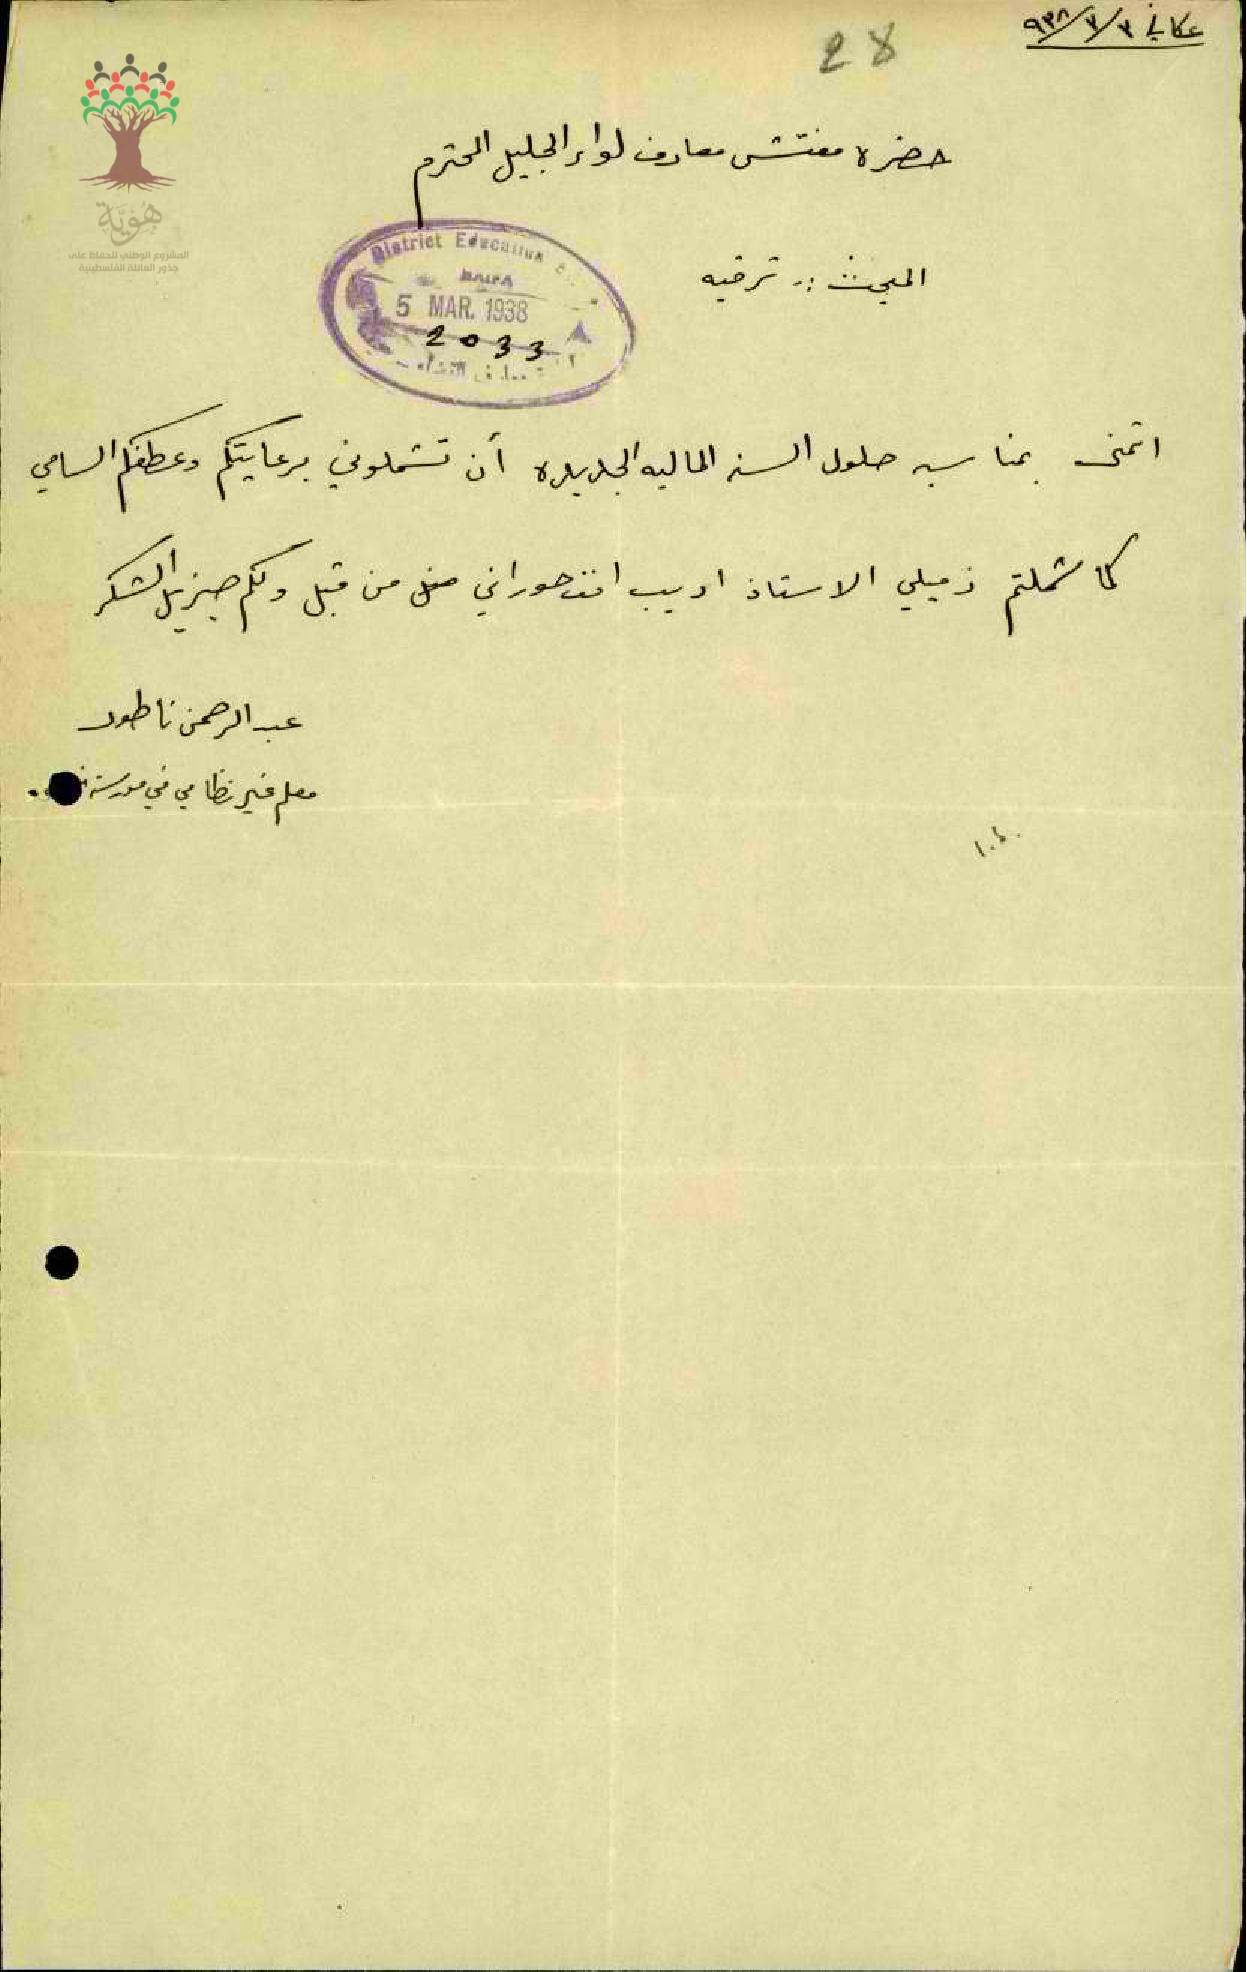 عكا في ٣/٣/٩٣٨
28
هُوِيَّة
المشروع الوطني للحفاظ على
جذور العائلة الفلسطينية
حضرة مفتش معارف لواء الجليل المحترم
District Education
HAIFA
5 MAR. 1938
2033
المبحث :. ترقيه
اتمنى بمناسبه حلول السنه الماليه الجديده أن تشملوني برعايتكم وعطفكم السامي
كما شملتم زميلي الاستاذ اديب افند حوراني من قبل ولكم جزيل الشكر
عبد الرحمن ناطور
معلم غير نظامي في مدرسة